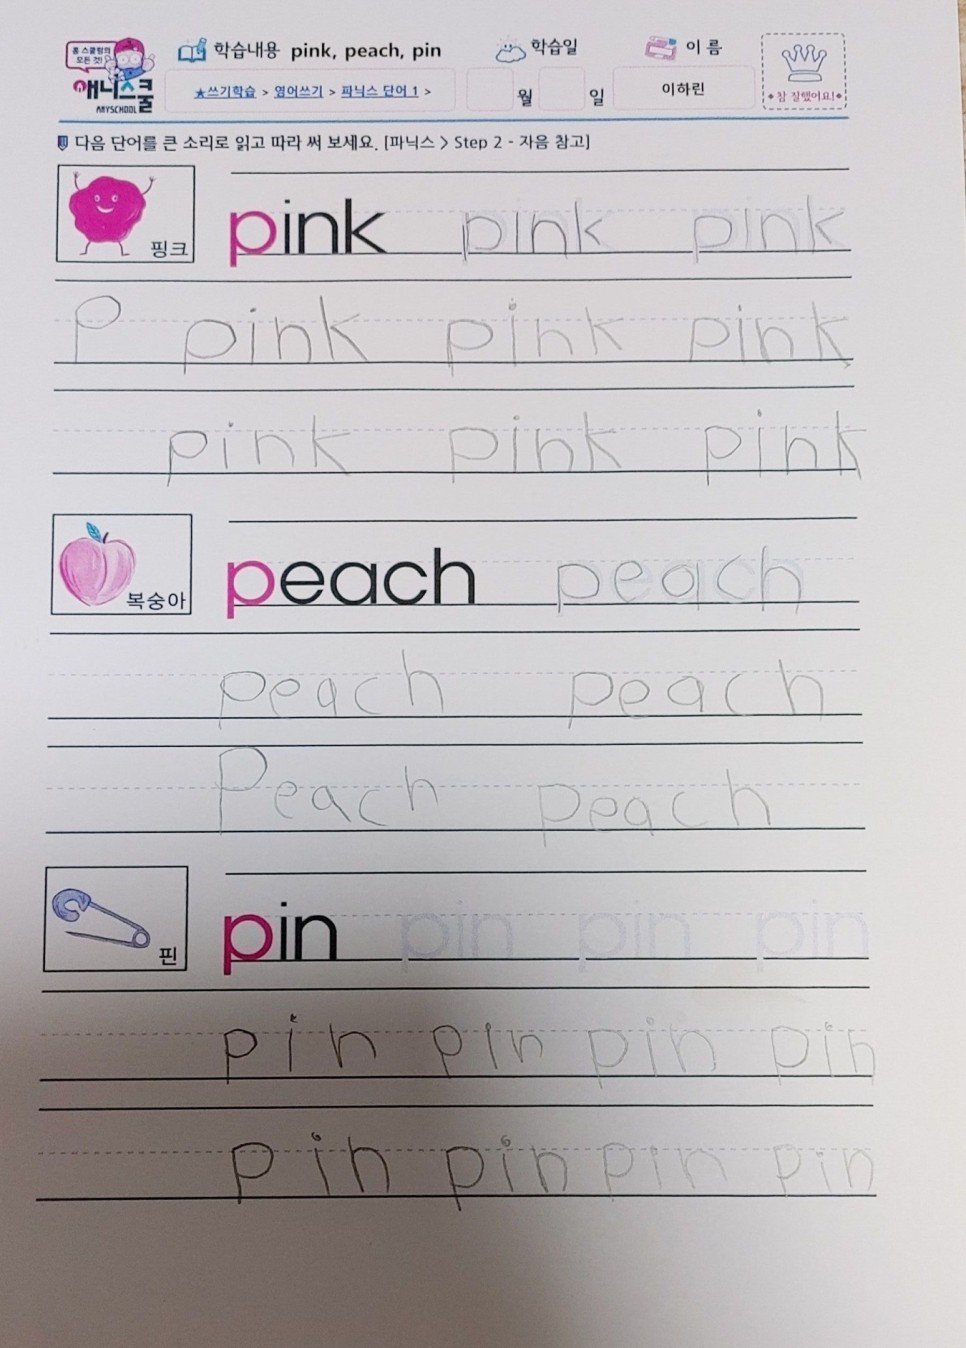 홈 스쿨링의 모든 것!
애니스쿨
ANYSCHOOL
학습내용 pink, peach, pin 학습일 이 름
★쓰기학습 > 영어쓰기 > 파닉스 단어 1 > 월 일 이하린
참 잘했어요!
다음 단어를 큰 소리로 읽고 따라 써 보세요. [파닉스 > Step 2 - 자음 참고]
핑크 pink pink pink
P pink pink pink
pink pink pink
복숭아 peach peach
peach peach
Peach peach
핀 pin pin pin pin
pin pin pin pin
pin pin pin pin